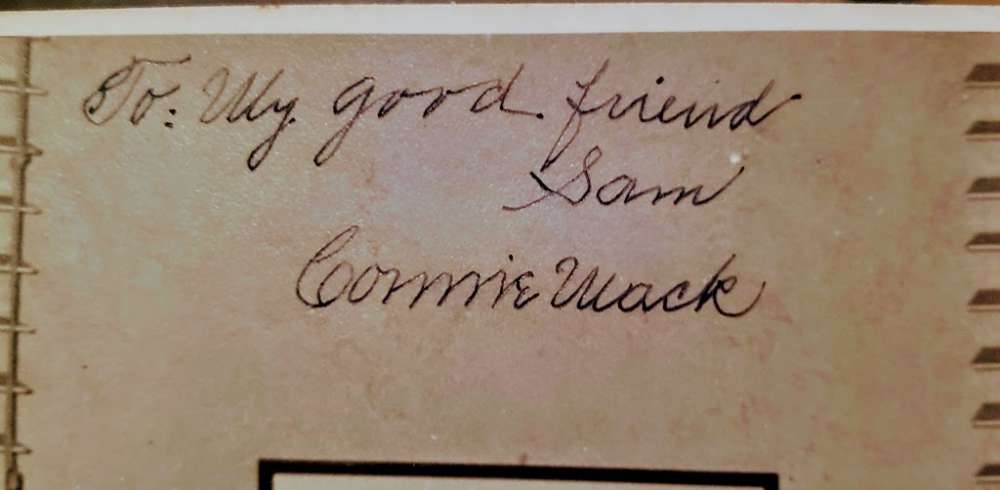 To: My good friend
Sam
Connie Mack